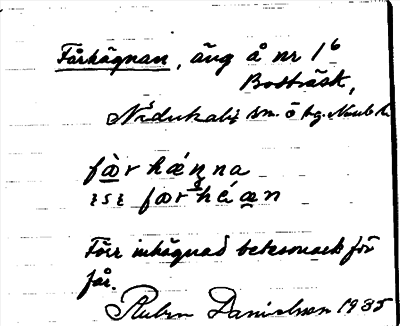 Fårhägnan, äng å nr 1⁶
Bodträsk,
Nederkalix sn. o tg. Norrb. l.
får hä́ŋna
fœr hé æn
Förr inhägnad betesmark för
får.
Ruben Danielsson 1935